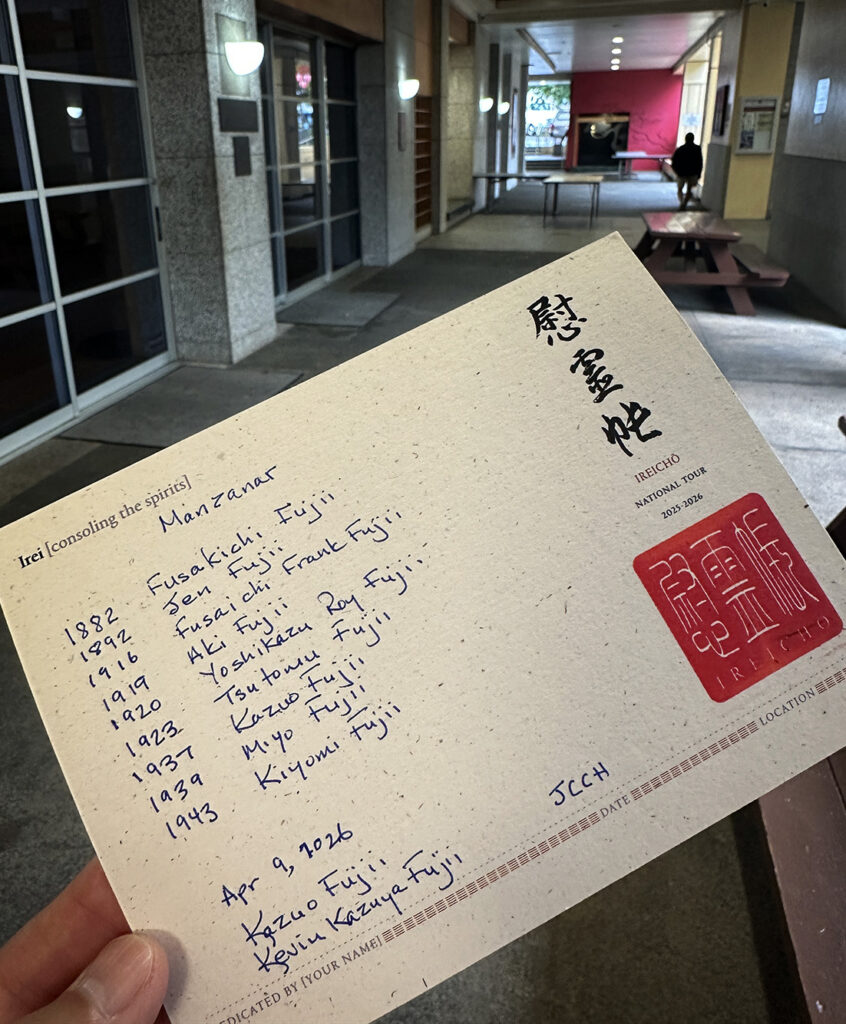 慰
霊
帖
IREICHŌ
NATIONAL TOUR
2025-2026
慰霊帳
IREICHO
Irei [consoling the spirits]
Manzanar
1882 Fusakichi Fujii
1892 Jen Fujii
1916 Fusaichi Frank Fujii
1919 Aki Fujii
1920 Yoshikazu Roy Fujii
1923 Tsutomu Fujii
1937 Kazuo Fujii
1939 Miyo Fujii
1943 Kiyomi Fujii
Apr 9, 2026
JCCH
Kazuo Fujii
Kevin Kazuya Fujii
DEDICATED BY [YOUR NAME] DATE LOCATION